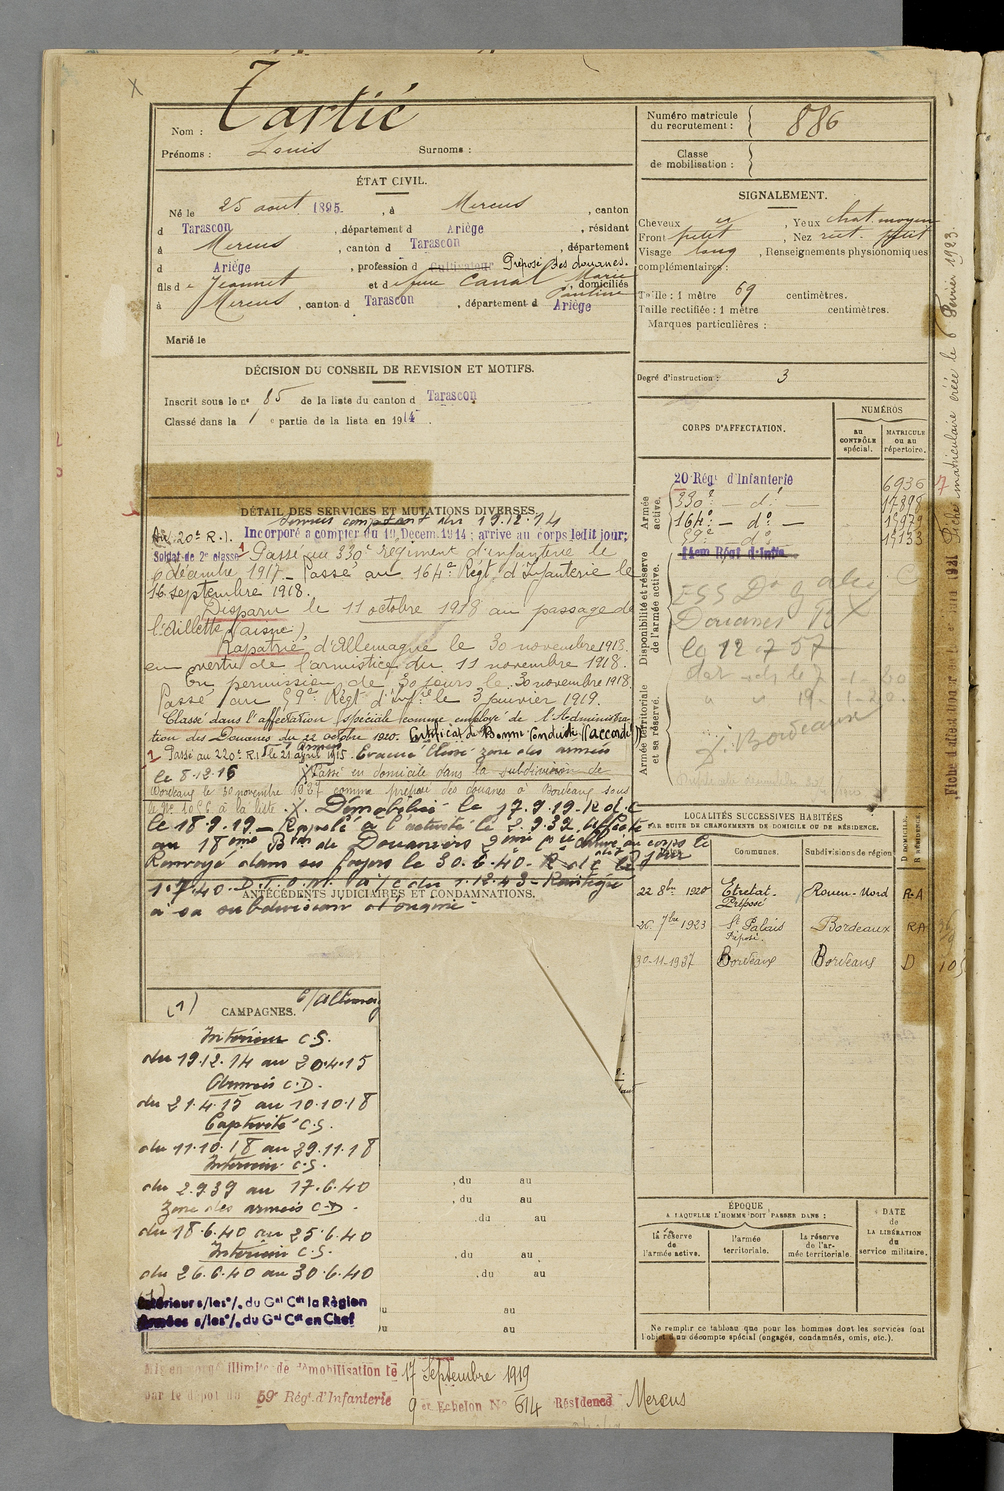 Tartié
Nom :
Prénoms : Louis Surnoms :
ÉTAT CIVIL.
Né le 25 aout 1895, à Mercus, canton
d Tarascon, département d Ariège, résidant
à Mercus, canton d Tarascon, département
d Ariège, profession d Cultivateur Préposé des douanes.
fils de Jeannet et de feue Canal Marie Pauline, domiciliés
à Mercus, canton d Tarascon, département d Ariège
Marié le
DÉCISION DU CONSEIL DE REVISION ET MOTIFS.
Inscrit sous le n° 85 de la liste du canton d Tarascon
Classé dans la 1e partie de la liste en 1914.
DÉTAIL DES SERVICES ET MUTATIONS DIVERSES.
Services comptant du 19.12.14
20e R.I. Incorporé à compter du 19 Décem. 1914 ; arrivé au corps ledit jour;
Soldat de 2e classe 1 Passé au 330e régiment d'infanterie le
6 décembre 1917. Passé au 164e Régt d'Infanterie le
16 septembre 1918.
Disparu le 11 octobre 1918 au passage de
l'Aillette (aisne)
Rapatrié d'Allemagne le 30 novembre 1918.
en vertu de l'armistice du 11 novembre 1918.
En permission de 30 jours le 30 novembre 1918
Passé au 59e Régt d'Infie le 3 janvier 1919.
Classé dans l'affectation spéciale comme employé de l'Administra-
tion des Douanes du 22 octobre 1920. Certificat de Bonne Conduite "accordé"
1 Passé au 220e R.I. le 21 avril 1915. Evacué blessé zone des armées
le 8-12-16 Passé en domicile dans la subdivision de
Bordeaux le 30 novembre 1937 comme préposé des douanes à Bordeaux sous
à la liste X. Démobilisé le 17.9.19. R.d.c
le 18.9.19 - Rappelé à l'activité le 2.9.39. Affecté
au 18ème Btn de Douaniers 9ème Cie arrivé au corps le
Renvoyé dans ses foyers le 30.6.40 - R.d.c le
1.7.40. D.T.O.M. à/c du 1.12.43 - Réintégré
ANTÉCÉDENTS JUDICIAIRES ET CONDAMNATIONS.
à sa subdivision d'origine
(1) CAMPAGNES. c/Allemagne
Intérieur C.S.
du 19.12.14 au 20.4.15
Armées C.D.
du 21.4.15 au 10.10.18
Captivité C.S.
du 11.10.18 au 29.11.18
Intérieur C.S.
du 2.9.39 au 17.6.40
Zone des armées C.D.
du 18.6.40 au 25.6.40
Intérieur C.S.
du 26.6.40 au 30.6.40
(1)
Intérieur s/les°/. du Gal Cdt la Région
Armées s/les°/. du Gal Cdt en Chef
, du au
, du au
, du au
, du au
, du au
du au
du au
Mis en congé illimité de démobilisation le 17 Septembre 1919
par le dépôt du 59e Régt. d'Infanterie
9e Echelon N° 614 Résidence Mercus
Numéro matricule
du recrutement : 886
Classe
de mobilisation :
SIGNALEMENT.
Cheveux Yeux chat. moyen
Front petit, Nez rect. petit
Visage long, Renseignements physionomiques
complémentaires :
Taille : 1 mètre 69 centimètres.
Taille rectifiée : 1 mètre centimètres.
Marques particulières :
Degré d'instruction : 3
CORPS D'AFFECTATION.
NUMÉROS
au CONTRÔLE spécial.
MATRICULE ou au répertoire.
Armée active.
20 Régt d'Infanterie 6936
330e - do
164e - do - 15929
59e - do -
Disponibilité et réserve de l'armée active.
Douanes
Armée territoriale et sa réserve.
Bordeaux
LOCALITÉS SUCCESSIVES HABITÉES
PAR SUITE DE CHANGEMENTS DE DOMICILE OU DE RÉSIDENCE.
Dates. Communes. Subdivisions de région. DOMICILE. RÉSIDENCE.
22 8bre 1920 Etretat. Préposé Rouen-Nord R-A
26 7bre 1923 St Palais Préposé. Bordeaux RA
30-11-1937 Bordeaux Bordeaux D
ÉPOQUE
A LAQUELLE L'HOMME DOIT PASSER DANS :
la réserve de l'armée active.
l'armée territoriale.
la réserve de l'armée territoriale.
DATE de LA LIBÉRATION du service militaire.
Ne remplir ce tableau que pour les hommes dont les services font
l'objet d'un décompte spécial (engagés, condamnés, omis, etc.).